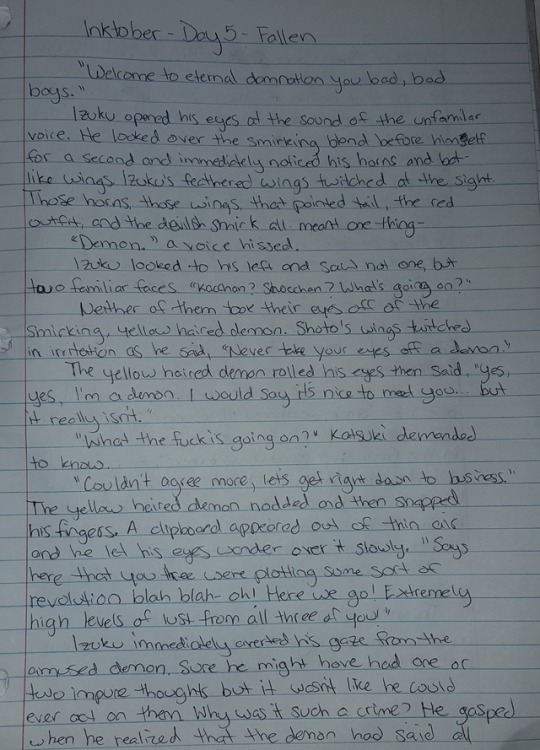 Inktober - Day 5 - Fallen
"Welcome to eternal damnation you bad, bad
boys."
Izuku opened his eyes at the sound of the unfamilar
voice. He looked over the smirking blond before himself
for a second and immedietely noticed his horns and bat-
like wings. Izuku's feathered wings twitched at the sight.
Those horns, those wings, that pointed tail, the red
outfit, and the devilish smirk all meant one thing-
"Demon." a voice hissed.
Izuku looked to his left and saw not one, but
two familiar faces. "Kacchan? Shocchan? What's going on?"
Neither of them took their eyes off of the
smircking, yellow haired demon. Shoto's wings twitched
in irritation as he said, "Never take your eyes off a demon."
The yellow haired demon rolled his eyes then said, "yes,
yes, I'm a demon. I would say it's nice to meet you... but
it really isn't."
"What the fuck is going on?" Katsuki demanded
to know.
"Couldn't agree more, let's get right down to business."
The yellow haired demon nodded and then snapped
his fingers. A clipboard appeared out of thin air
and he let his eyes wonder over it slowly. "Says
here that you three were plotting some sort of
revolution blah blah- oh! Here we go! Extremely
high levels of lust from all three of you!"
Izuku immediately averted his gaze from the
amused demon. Sure he might have had one or
two impure thoughts but it wasn't like he could
ever act on them. Why was it such a crime? He gasped
when he realized that the demon had said all